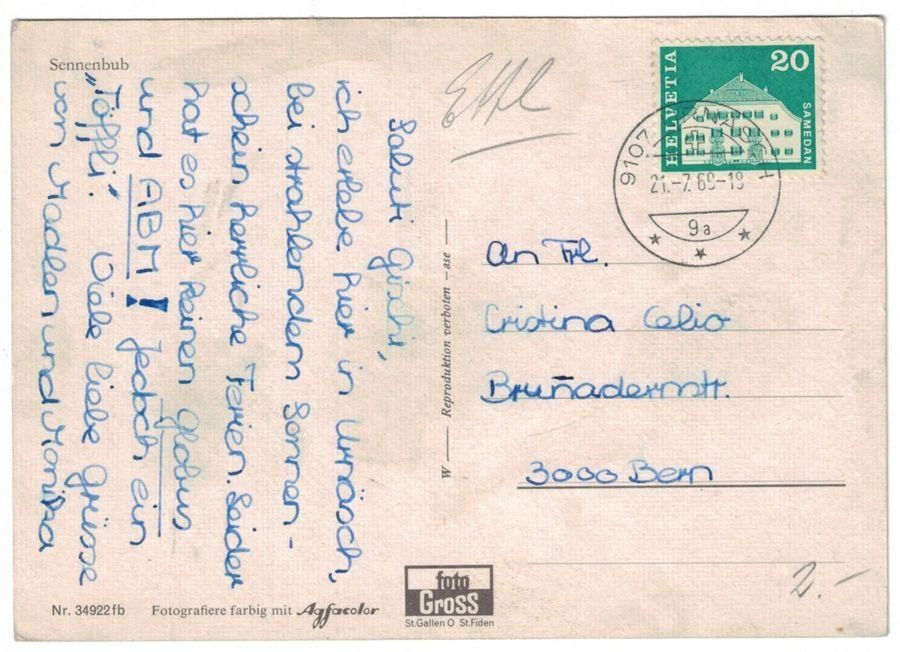 Sennenbub
Saluti Gischi,
ich erlebe hier in Urnäsch,
bei strahlendem Sonnen-
schein, herrliche Ferien. Leider
hat es hier keinen Globus
und ABM! Jedoch ein
"Töffli." Viele liebe Grüsse
von Madlen und Monika
HELVETIA
20
SAMEDAN
9107
21.-7.69-19
9a
An Frl.
Cristina Celio
Brunadernstr.
3000 Bern
W — Reproduktion verboten – ase —
Nr. 34922fb Fotografiere farbig mit Agfacolor
foto
Gross
St.Gallen O St.Fiden
2.-